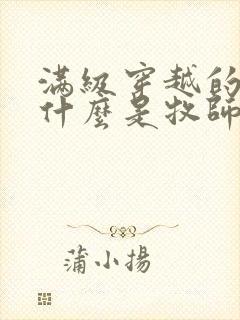 滿級穿越的
什麼是牧師
蒲小揚